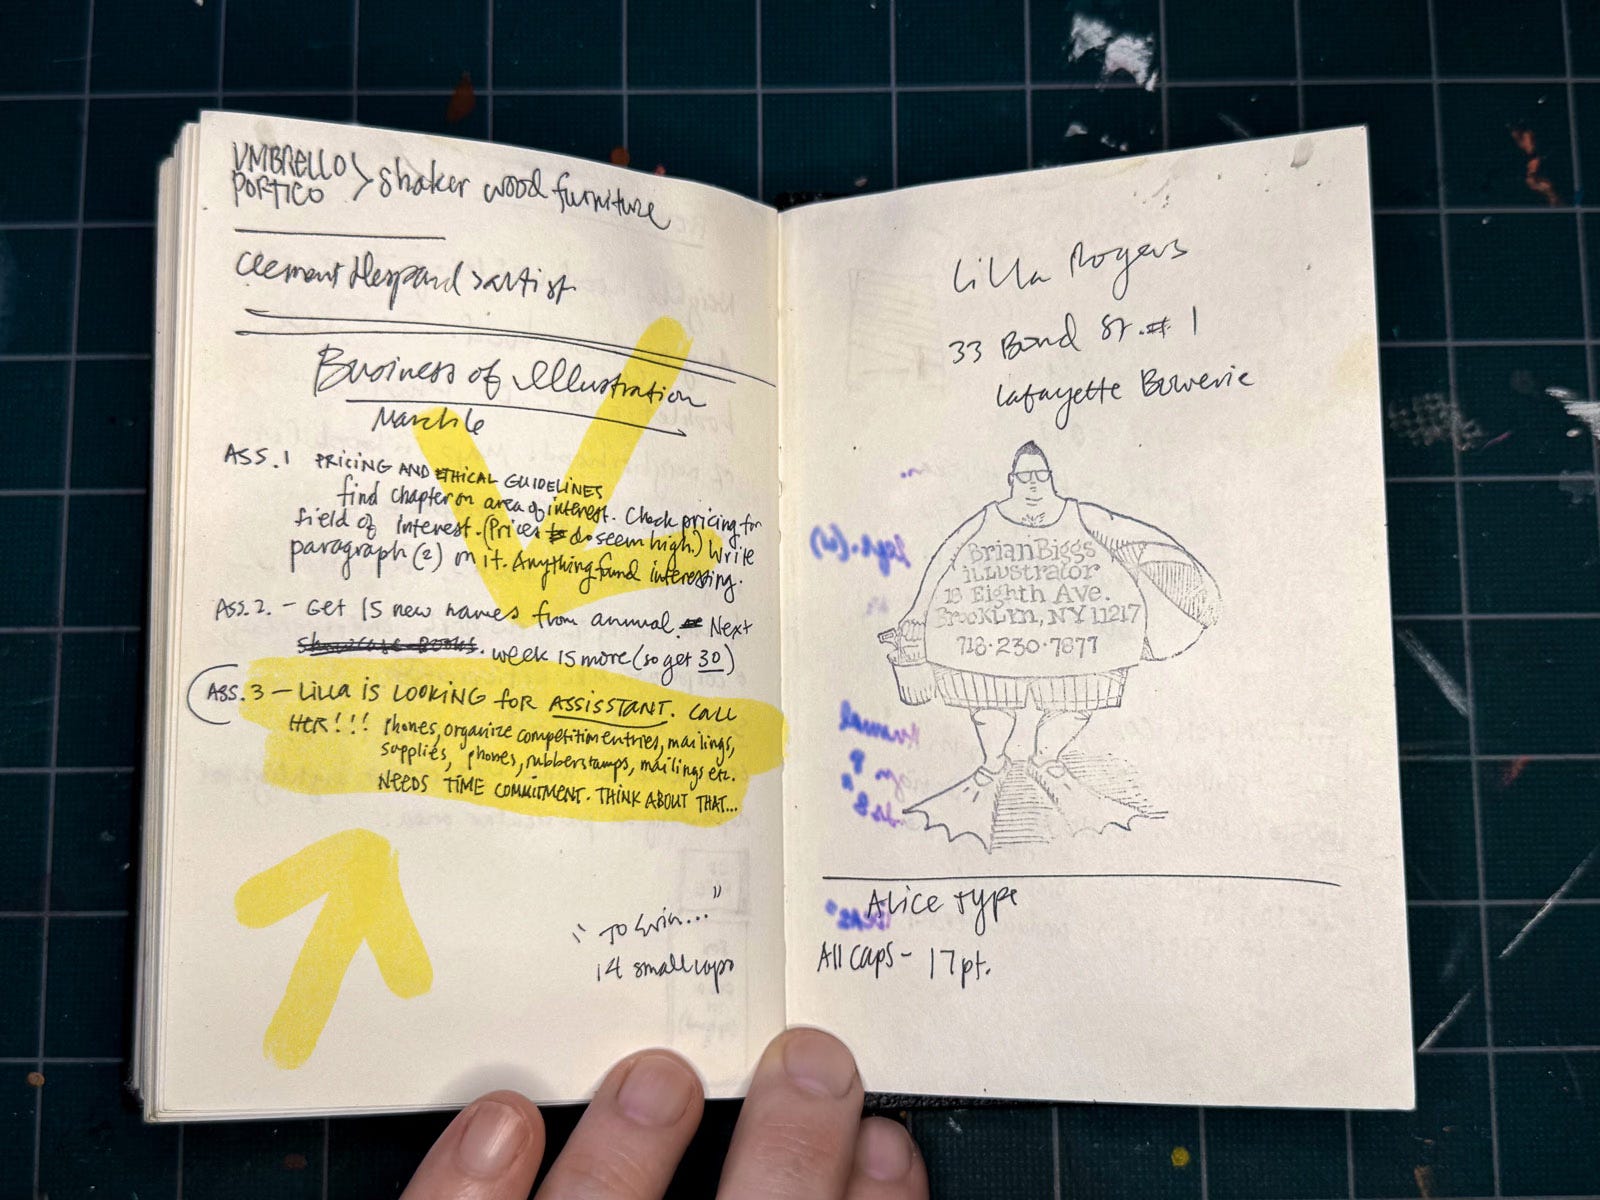 UMBRELLO
PORTICO > Shaker wood furniture
Business of Illustration
March 6
ASS. 1 PRICING AND ETHICAL GUIDELINES
find chapter on area of interest. Check pricing for
field of interest. (Prices do seem high.) Write
paragraph (2) on it. Anything found interesting.
ASS. 2. - Get 15 new names from annual. Next
Showcase Books. week 15 more (so get 30)
ASS. 3 - LILLA IS LOOKING FOR ASSISSTANT. CALL
HER!!! Phones, organize competition entries, mailings,
supplies, phones, rubberstamps, mailings etc.
NEEDS TIME COMMITMENT. THINK ABOUT THAT...
"TO Erin..."
14 small caps
Lilla Rogers
33 Bond St. # 1
Lafayette Bowerie
Brian Biggs
illustrator
18 Eighth Ave.
Brooklyn, NY 11217
718·230·7877
Alice type
All caps - 17pt.